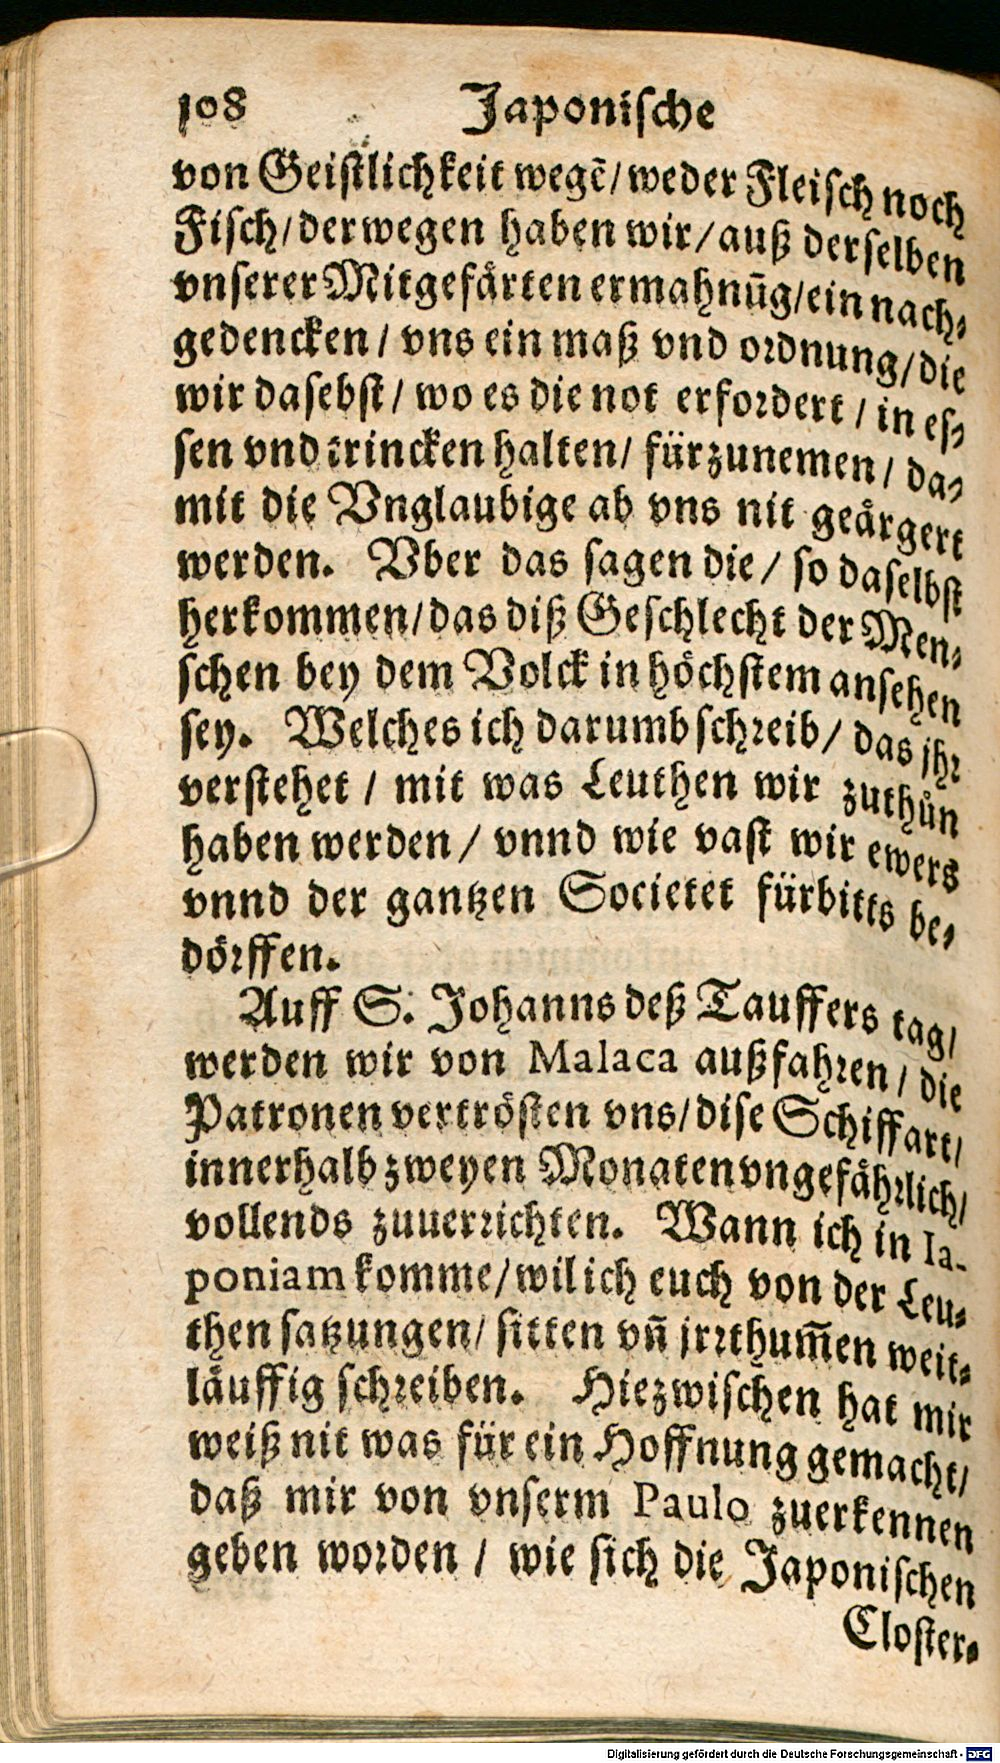 108 Japonische
von Geistlichkeit wegē/ weder Fleisch noch
Fisch/ derwegen haben wir/ auß derselben
vnserer Mitgefärten ermahnūg/ ein nach-
gedencken/ vns ein maß vnd ordnung/ die
wir dasebst/ wo es die not erfordert/ in es-
sen vnd trincken halten/ fürzunemen/ da-
mit die Vnglaubige ab vns nit geärgert
werden. Vber das sagen die/ so daselbst
herkommen/ das diß Geschlecht der Men-
schen bey dem Volck in höchstem ansehen
sey. Welches ich darumb schreib/ das jhr
verstehet/ mit was Leuthen wir zuthůn
haben werden/ vnnd wie vast wir ewers
vnnd der gantzen Societet fürbitts be-
dörffen.
Auff S. Johanns deß Tauffers tag/
werden wir von Malaca außfahren/ die
Patronen vertrösten vns/ dise Schiffart/
innerhalb zweyen Monaten vngefährlich/
vollends zuuerrichten. Wann ich in Ia-
poniam komme/ wil ich euch von der Leu-
then satzungen/ sitten vn̄ jrrthum̄en weit-
läuffig schreiben. Hiezwischen hat mir
weiß nit was für ein Hoffnung gemacht/
daß mir von vnserm Paulo zuerkennen
geben worden/ wie sich die Japonischen
Closter-
Digitalisierung gefördert durch die Deutsche Forschungsgemeinschaft - DFG